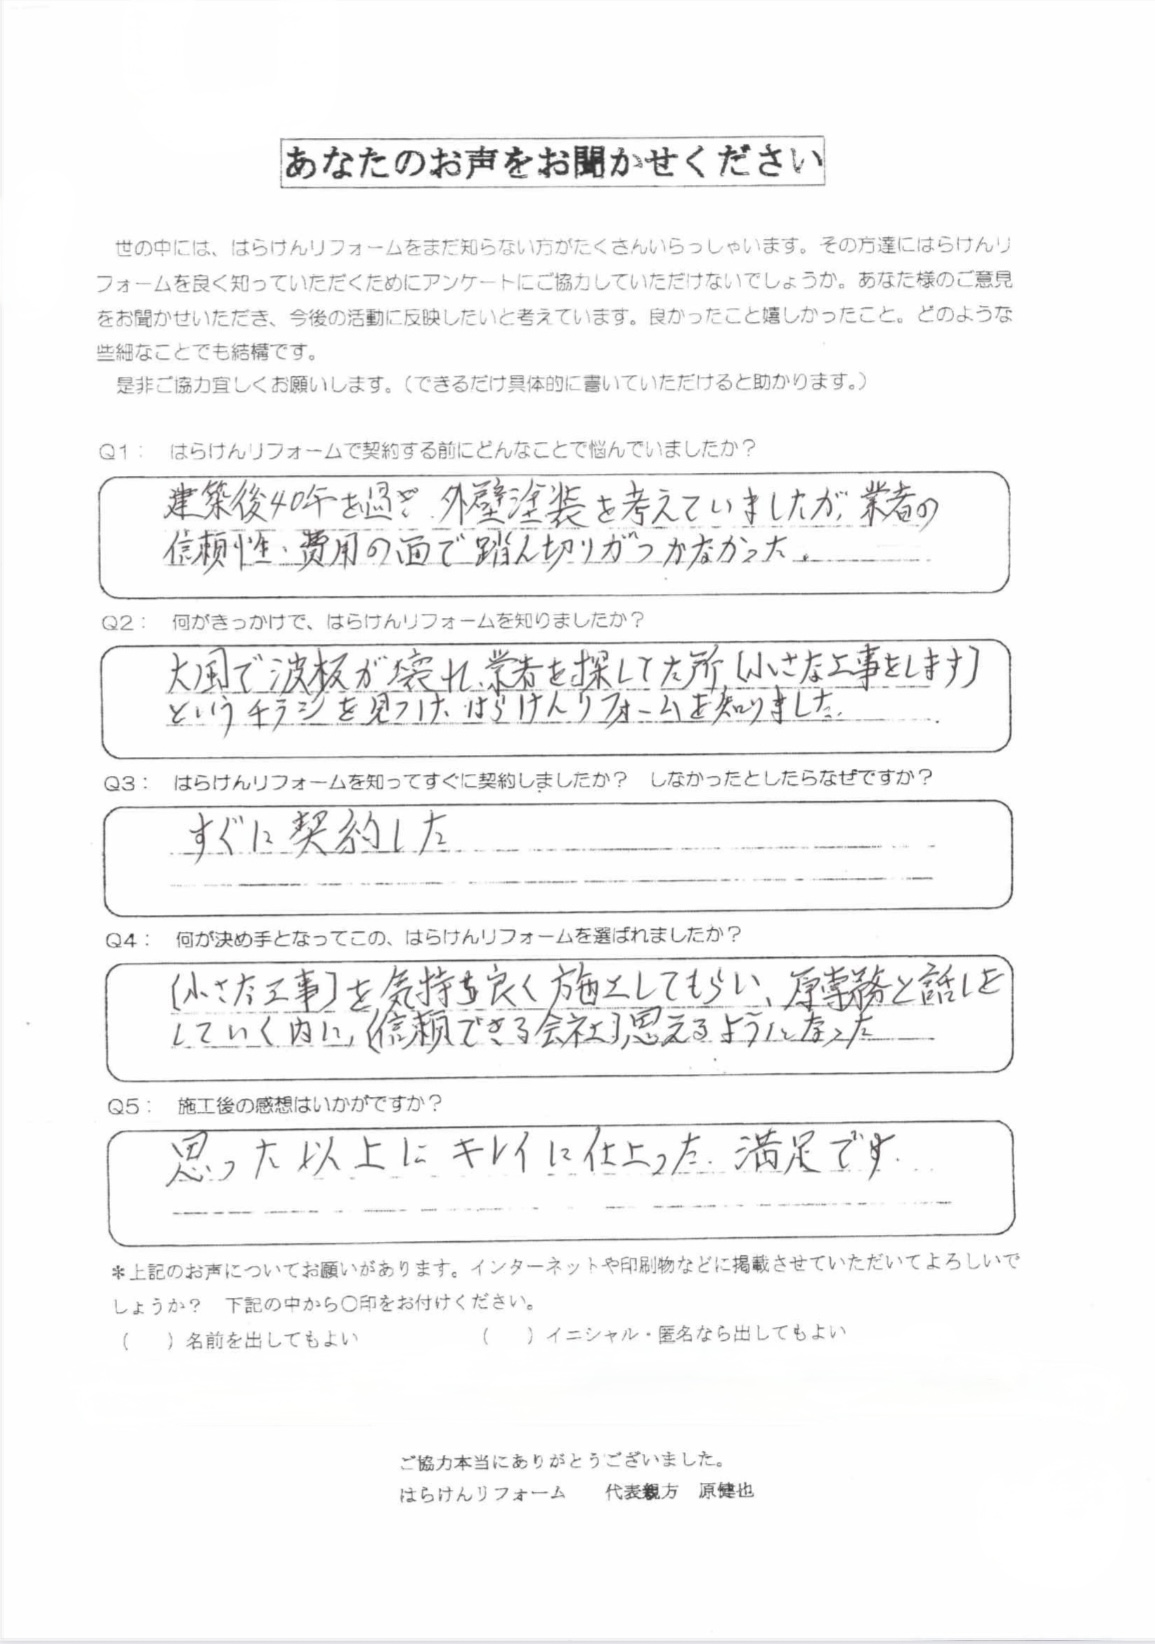 あなたのお声をお聞かせください
世の中には、はらけんリフォームをまだ知らない方がたくさんいらっしゃいます。その方達にはらけんリ
フォームを良く知っていただくためにアンケートにご協力していただけないでしょうか。あなた様のご意見
をお聞かせいただき、今後の活動に反映したいと考えています。良かったこと嬉しかったこと。どのような
些細なことでも結構です。
是非ご協力宜しくお願いします。（できるだけ具体的に書いていただけると助かります。）
Q1： はらけんリフォームで契約する前にどんなことで悩んでいましたか？
建築後40年を過ぎ、外壁塗装を考えていましたが、業者の
信頼性、費用の面で踏ん切りがつかなかった。
Q2： 何がきっかけで、はらけんリフォームを知りましたか？
大風で波板が壊れ、業者を探してた所、[小さな工事をします]
というチラシを見つけ、はらけんリフォームを知りました。
Q3： はらけんリフォームを知ってすぐに契約しましたか？ しなかったとしたらなぜですか？
すぐに契約した
Q4： 何が決め手となってこの、はらけんリフォームを選ばれましたか？
[小さな工事]を気持ち良く施工してもらい、原専務と話しを
していく内に、[信頼できる会社]思えるようになった
Q5： 施工後の感想はいかがですか？
思った以上にキレイに仕上った、満足です。
＊上記のお声についてお願いがあります。インターネットや印刷物などに掲載させていただいてよろしいで
しょうか？ 下記の中から〇印をお付けください。
（ ）名前を出してもよい （ ）イニシャル・匿名なら出してもよい
ご協力本当にありがとうございました。
はらけんリフォーム 代表親方 原健也